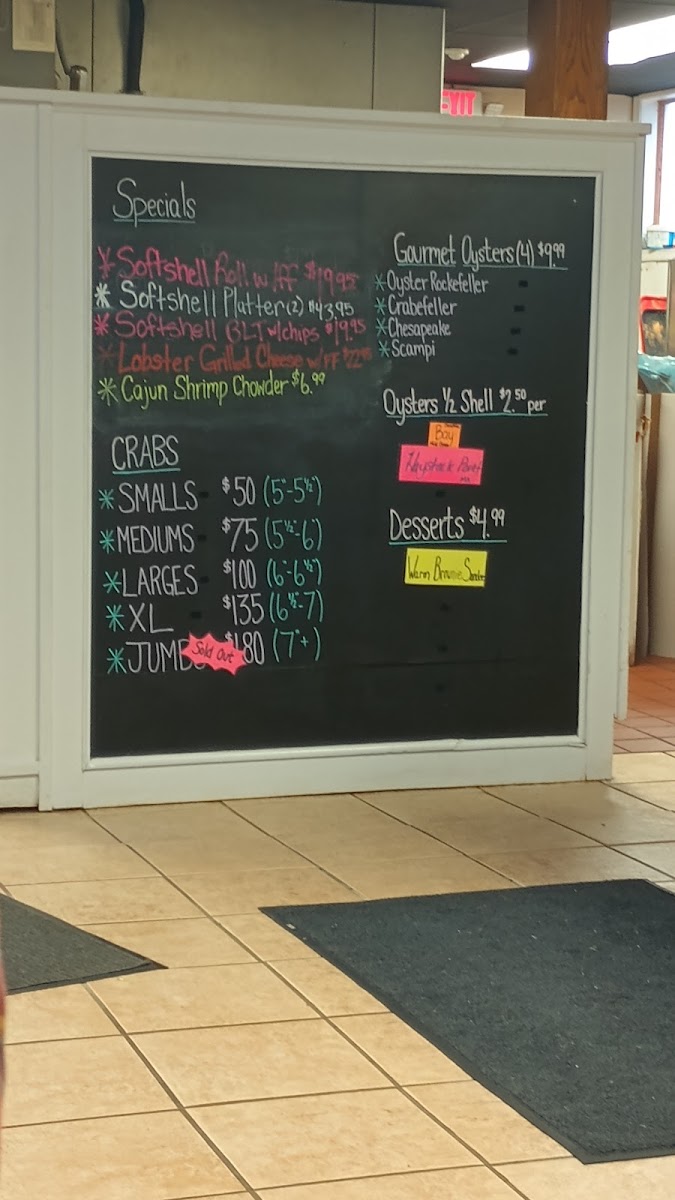 EXIT
Specials
* Softshell Roll w/ FF $19.95
* Softshell Platter (2) $43.95
* Softshell BLT w/chips $19.95
* Lobster Grilled Cheese w/ FF
* Cajun Shrimp Chowder $6.99
CRABS
* SMALLS $50 (5"-5½")
* MEDIUMS $75 (5½"-6")
* LARGES $100 (6"-6½")
* XL $135 (6½"-7)
* JUMB $180 (7"+)
Sold Out
Gourmet Oysters (4) $9.99
* Oyster Rockefeller
* Crabefeller
* Chesapeake
* Scampi
Oysters ½ Shell $2.50 per
Bay
Haystack
Desserts $4.99
Warm Brownie